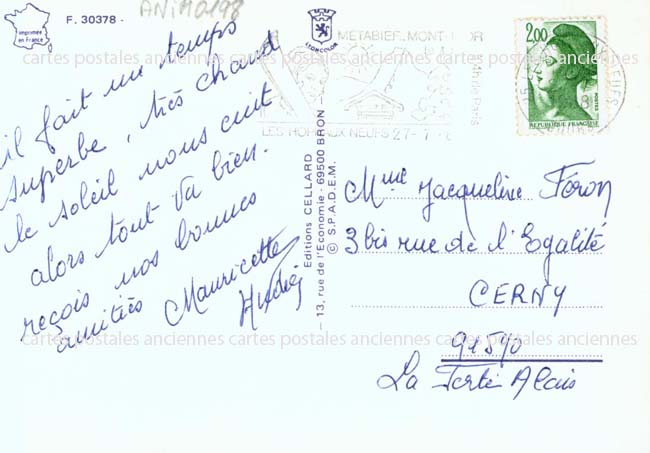 ANIMO198
F. 30378 -
imprimée
en France
LEONCOLOR
METABIEF-MONT-D'OR
LES HOPITAUX NEUFS 27-7
2,00
POSTES
REPUBLIQUE FRANÇAISE
il fait un temps
superbe, très chaud
le soleil nous cuit
alors tout va bien.
reçois nos bonnes
amitiés Mauricette
Editions CELLARD
— 13, rue de l'Economie - 69500 BRON —
© S.P.A.D.E.M.
Mme Jacqueline Féron
3 bis rue de l'Egalité
CERNY
91590
La Ferté Alais
cartes postales anciennes cartes postales anciennes cartes postales anciennes
cartes postales anciennes cartes postales anciennes cartes postales anciennes